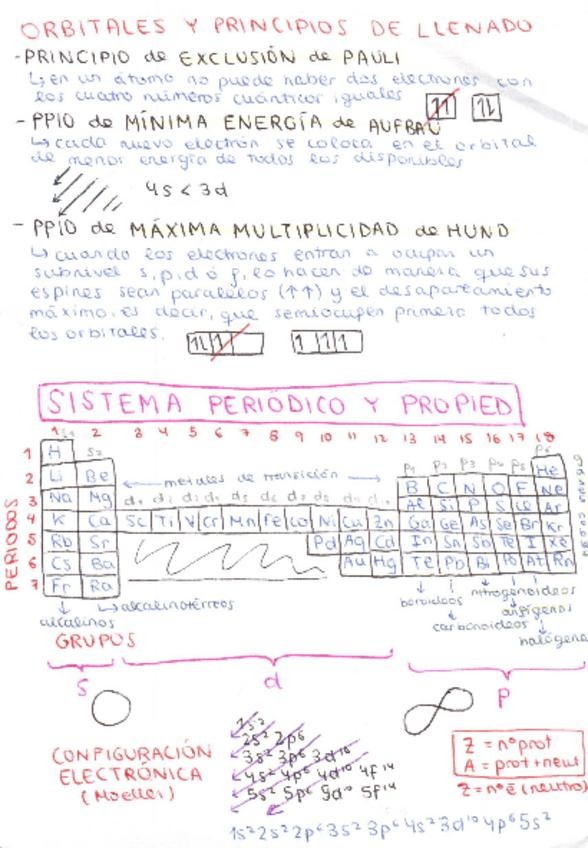 ORBITALES Y PRINCIPIOS DE LLENADO
-PRINCIPIO de EXCLUSIÓN de PAULI
↳ en un átomo no puede haber dos electrones con
los cuatro números cuánticos iguales
- PPIO de MÍNIMA ENERGÍA de AUFBAU
↳ cada nuevo electrón se coloca en el orbital
de menos energía de todos los disponibles
4s < 3d
- PPIO de MÁXIMA MULTIPLICIDAD de HUND
↳ cuando los electrones entran a ocupar un
subnivel s, p, d ó f, lo hacen de manera que sus
espines sean paralelos (↑↑) y el desapareamiento
máximo, es decir, que semiocupen primero todos
los orbitales.
SISTEMA PERIÓDICO Y PROPIED
1 2 3 4 5 6 7 8 9 10 11 12 13 14 15 16 17 18
PERIODOS
1 H s2 p6 He
2 Li Be ← metales de transición → p1 p2 p3 p4 p5
B C N O F Ne
3 Na Mg Al Si P S Ar
4 K Ca Sc Ti V Cr Mn Fe Co Ni Cu Zn Ga Ge As Se Br Kr
5 Rb Sr Pd Ag Cd In Sn Sb Te I Xe
6 Cs Ba Au Hg Te Pb Bi Po At Rn
7 Fr Ra
alcalinos
↳ alcalinotérreos
boroideos
carbonoideos
nitrogenoideos
anfígenos
halógeno
GRUPOS
s d p
CONFIGURACIÓN
ELECTRÓNICA
(Moeller)
1s2
2s² 2p⁶
3s² 3p⁶ 3d¹⁰
4s² 4p⁶ 4d¹⁰ 4f¹⁴
5s² 5p⁶ 5d¹⁰ 5f¹⁴
1s² 2s² 2p⁶ 3s² 3p⁶ 4s² 3d¹⁰ 4p⁶ 5s²
Z = nº prot
A = prot + neut
Z = nº ē (neutro)